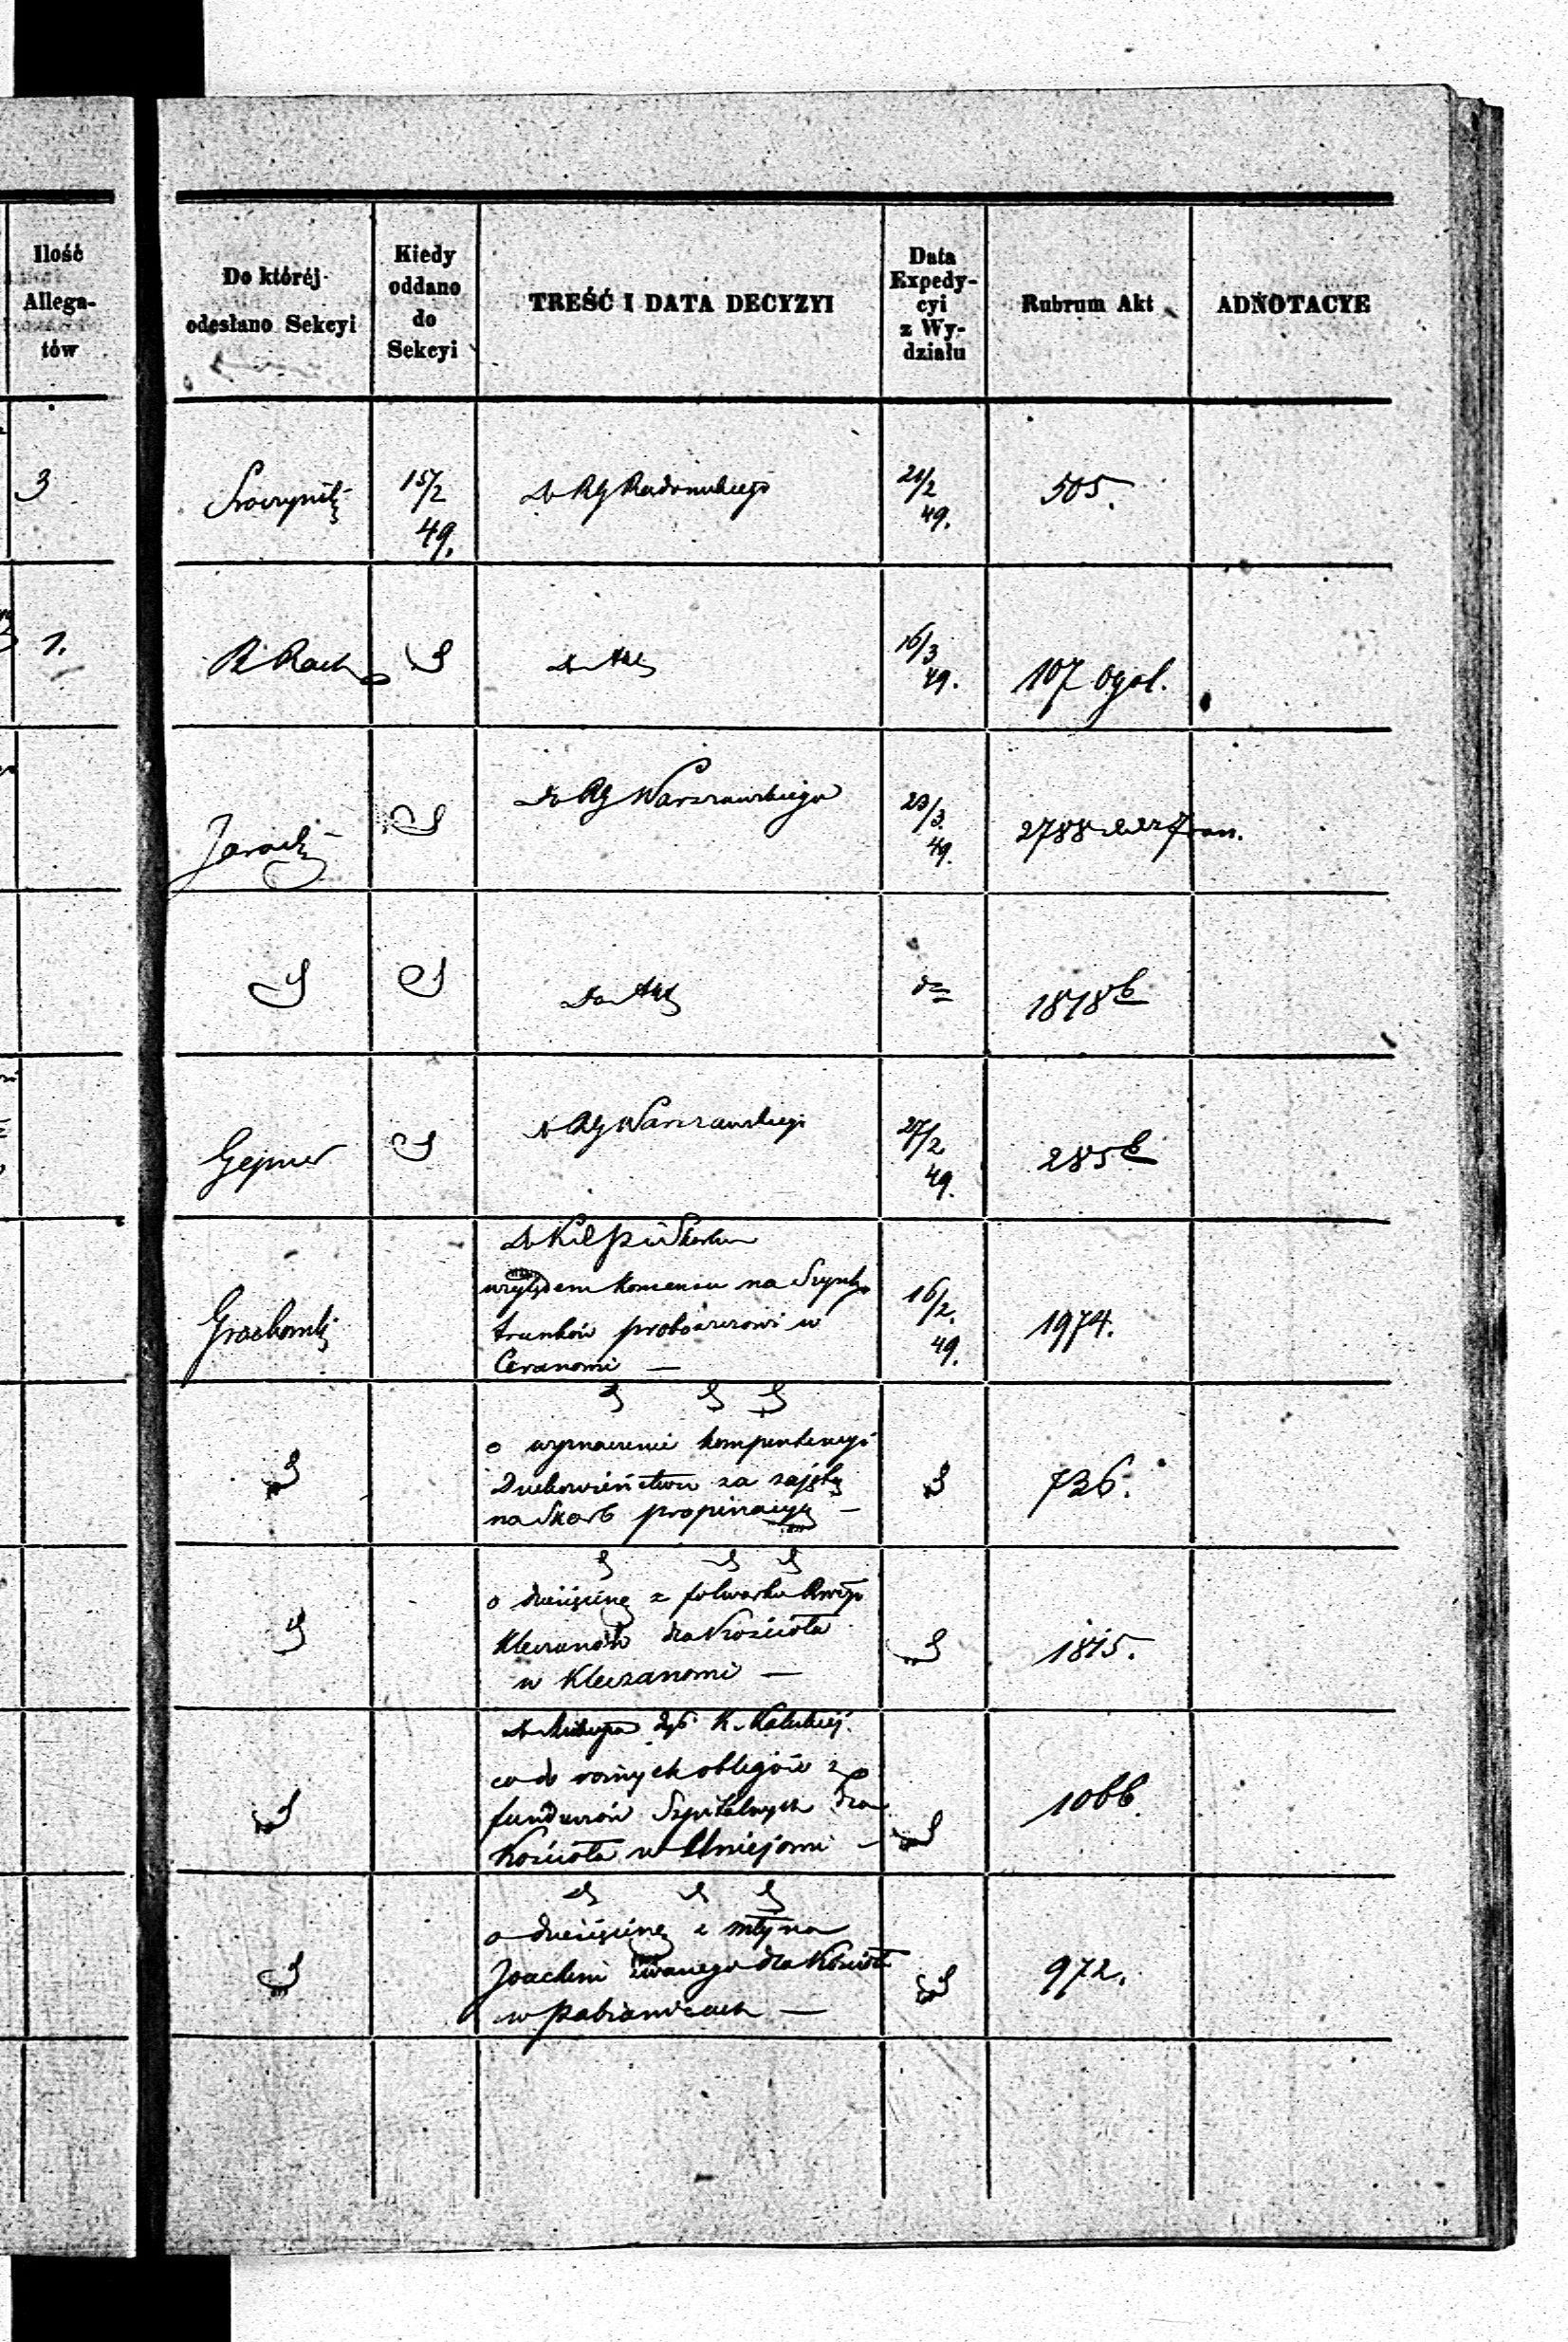 Ilość
Allega-
tów
Do któréj
odesłano Sekcyi
Kiedy
oddano
do
Sekcyi
TREŚĆ I DATA DECYZYI
Data
Expedy-
cyi
z Wy-
działu
Rubrum Akt
ADNOTACYE
3
15/2
49.
Do RG Radomskiego
21/2
49.
505.
1.
Do Akt
16/3
49.
107 ogol.
Do RG Warszawskiego
23/3
49.
2788
Do Akt
do
1878 b
Do RG Warszawskiego
27/2
49.
285 b
Do
względem na
trunków proboszczowi w
Ceranowi —
16/2
49.
1974.
o wyznaczenie kompetencyi
Duchowieństwu za zajętą
na Skarb propinacyą —
736.
o dziesięcinę z folwarku
Kleczanów dla Kościoła
w Kleczanowi —
1815.
Do Biskupa K. Kaliskiej
co do różnych obligów z
funduszów Szpitalnych dla
Kościoła w Uniejowi —
1066.
o dziesięcinę z młyna
Joachim zwanego dla Kościoła
w Pabianicach —
972.